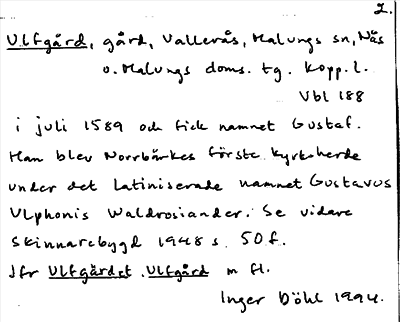 2.
Ulfgård, gård, Vallerås, Malungs sn, Nås
o. Malungs doms. tg. Kopp. l.
Vbl 188
i juli 1589 och fick namnet Gustaf.
Han blev Norrbärkes förste kyrkoherde
under det latiniserade namnet Gustavus
Ulphonis Waldrosiander. Se vidare
Skinnarebygd 1948 s. 50 f.
Jfr Ulfgärdet, Ulfgård m fl.
Inger Döhl 1994.